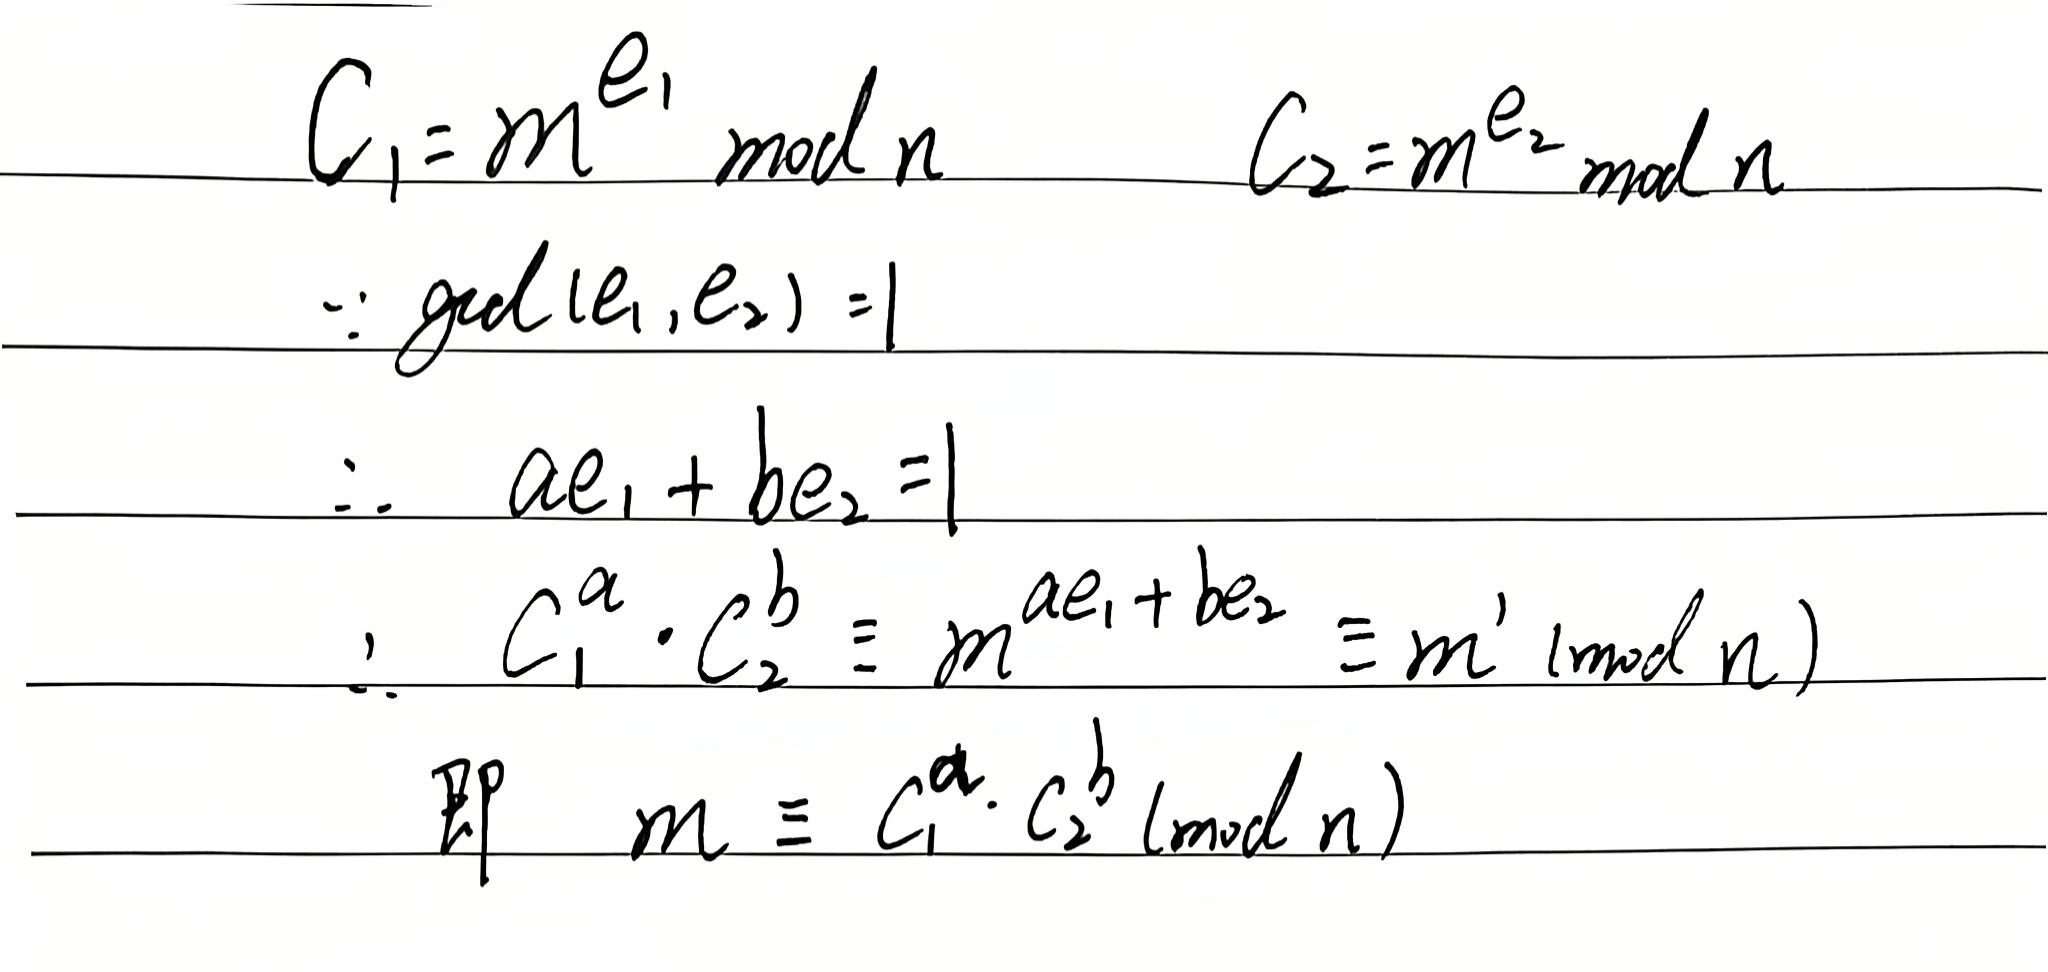 C₁ = m^e₁ mod n    C₂ = m^e₂ mod n
∵ gcd(e₁, e₂) = 1
∴ ae₁ + be₂ = 1
∴ C₁^a · C₂^b ≡ m^(ae₁ + be₂) ≡ m¹ (mod n)
即 m ≡ C₁^a · C₂^b (mod n)